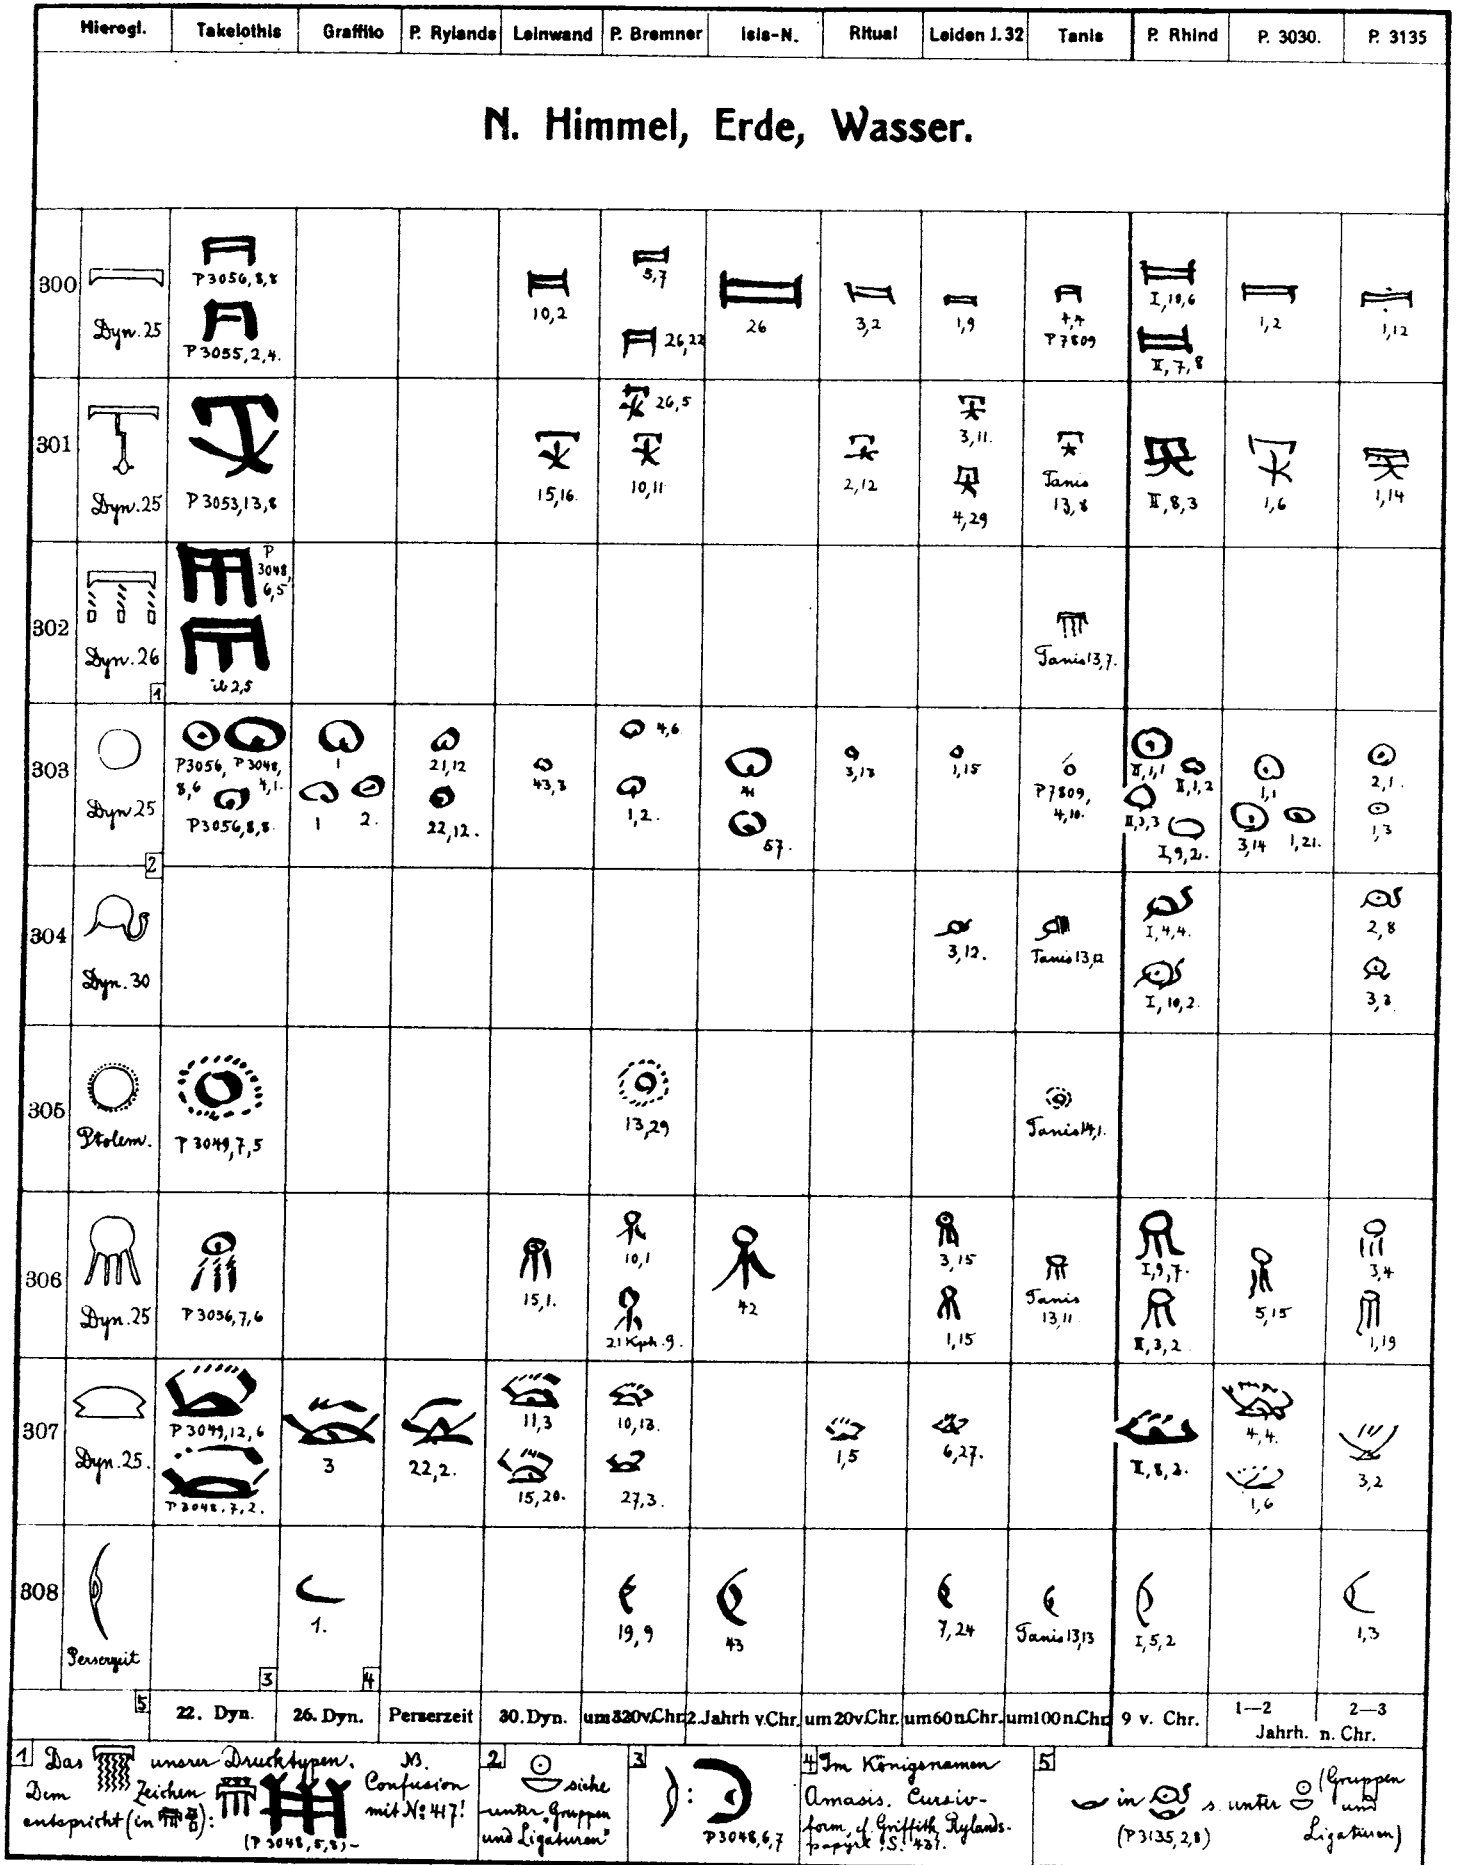 Hierogl. Takelothis Graffito P. Rylands Leinwand P. Bremner Isis-N. Ritual Leiden J. 32 Tanis P. Rhind P. 3030. P. 3135
N. Himmel, Erde, Wasser.
300
Dyn. 25
P 3056, 8, 8
P 3055, 2, 4.
10, 2
5, 7
26, 22
26
3, 2
1, 9
4, 4
P 7809
I, 10, 6
II, 7, 8
1, 2
1, 12
301
Dyn. 25
P 3053, 13, 8
15, 16.
26, 5
10, 11
2, 12
3, 11.
4, 29
Tanis
13, 8
II, 8, 3
1, 6
1, 14
302
Dyn. 26
1
P
3048,
6, 5
ib 2, 5
Tanis 13, 7.
303
Dyn. 25
2
P 3056, P 3048,
8, 6 4, 1.
P 3056, 8, 8.
1
1 2.
21, 12
22, 12.
43, 3
4, 6
1, 2.
41
57.
3, 13
1, 15
P 7809,
4, 10.
II, 1, 1
II, 1, 2
II, 3, 3
I, 9, 2.
1, 1
3, 14 1, 21.
2, 1.
1, 3
304
Dyn. 30
3, 12.
Tanis 13, 12
I, 4, 4.
I, 10, 2.
2, 8
3, 3
305
Ptolem.
P 3049, 7, 5
13, 29
Tanis 14, 1.
306
Dyn. 25
P 3056, 7, 6
15, 1.
10, 1
21 Kph. 9.
42
3, 15
1, 15
Tanis
13, 11
I, 9, 7.
II, 3, 2
5, 15
3, 4
1, 19
307
Dyn. 25.
P 3049, 12, 6
P 3048, 7, 2.
3
22, 2.
11, 3
15, 20.
10, 13.
27, 3.
1, 5
6, 27.
II, 8, 2.
4, 4.
1, 6
3, 2
308
Perserzeit
5
3
1.
4
19, 9
43
7, 24
Tanis 13, 13
I, 5, 2
1, 3
22. Dyn. 26. Dyn. Perserzeit 30. Dyn. um 320 v. Chr. 2. Jahrh v. Chr. um 20 v. Chr. um 60 n. Chr. um 100 n. Chr. 9 v. Chr. 1—2 2—3
Jahrh. n. Chr.
1 Das unsrer Drucktypen.
Dem Zeichen
entspricht (in ):
(P 3048, 5, 8) -
NB.
Confusion
mit No 417!
2 siehe
unter „Gruppen
und Ligaturen"
3 :
P 3048, 6, 7
4 Im Königsnamen
Amasis. Cursiv-
form, cf. Griffith, Rylands-
papyri S.
5
in s. unter (Gruppen
und
(P 3135, 2, 8) Ligaturen)